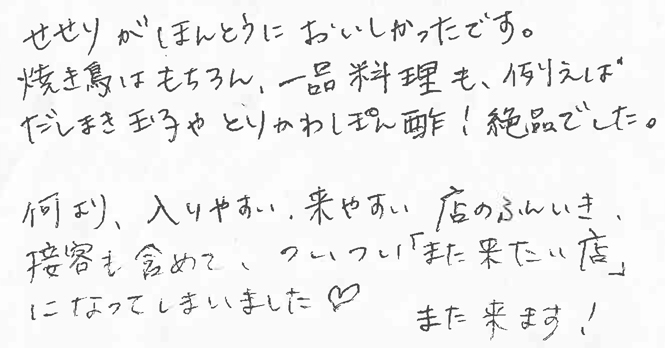 せせりがほんとうにおいしかったです。
焼き鳥はもちろん、一品料理も、例えば
だしまき玉子やとりかわしぽん酢！絶品でした。
何より、入りやすい、来やすい店のふんいき、
接客も含めて、ついつい「また来たい店」
になってしまいました♡
また来ます！